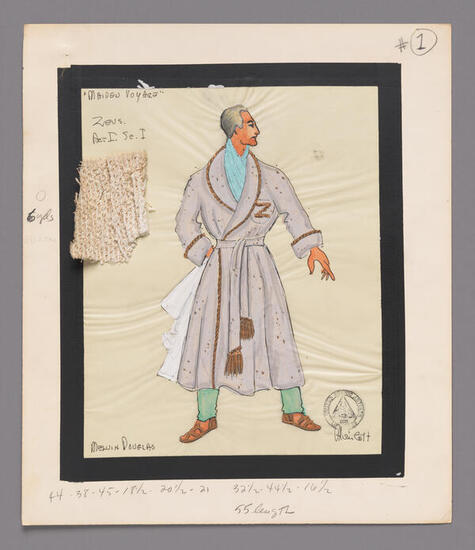 # 1
"MAIDEN VOYAGE"
ZEUS.
ACT I. SC. I
6 yds
Z
MELVIN DOUGLAS
44 - 38 - 45 - 18 1/2 - 20 1/2 - 21 32 1/2 - 44 1/2 - 16 1/2
55 length